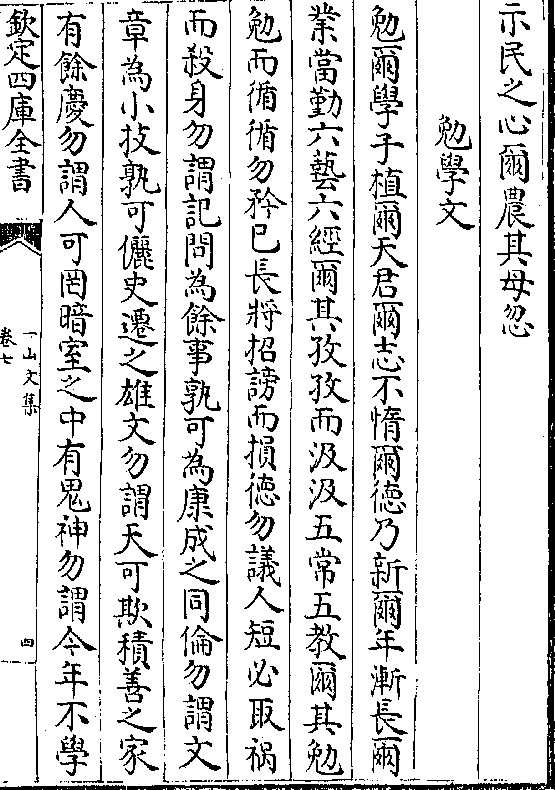 示民之心爾農其毋忽
勉學文
勉爾學子植爾天君爾志不惰爾德乃新爾年漸長爾
業當勤六藝六經爾其孜孜而汲汲五常五教爾其勉
勉而循循勿矜已長將招謗而損德勿議人短必取禍
而殺身勿謂記問為餘事孰可為康成之同倫勿謂文
章為小技孰可儷史遷之雄文勿謂天可欺積善之家
有餘慶勿謂人可罔暗室之中有鬼神勿謂今年不學
欽定四庫全書
一山文集
卷七
四